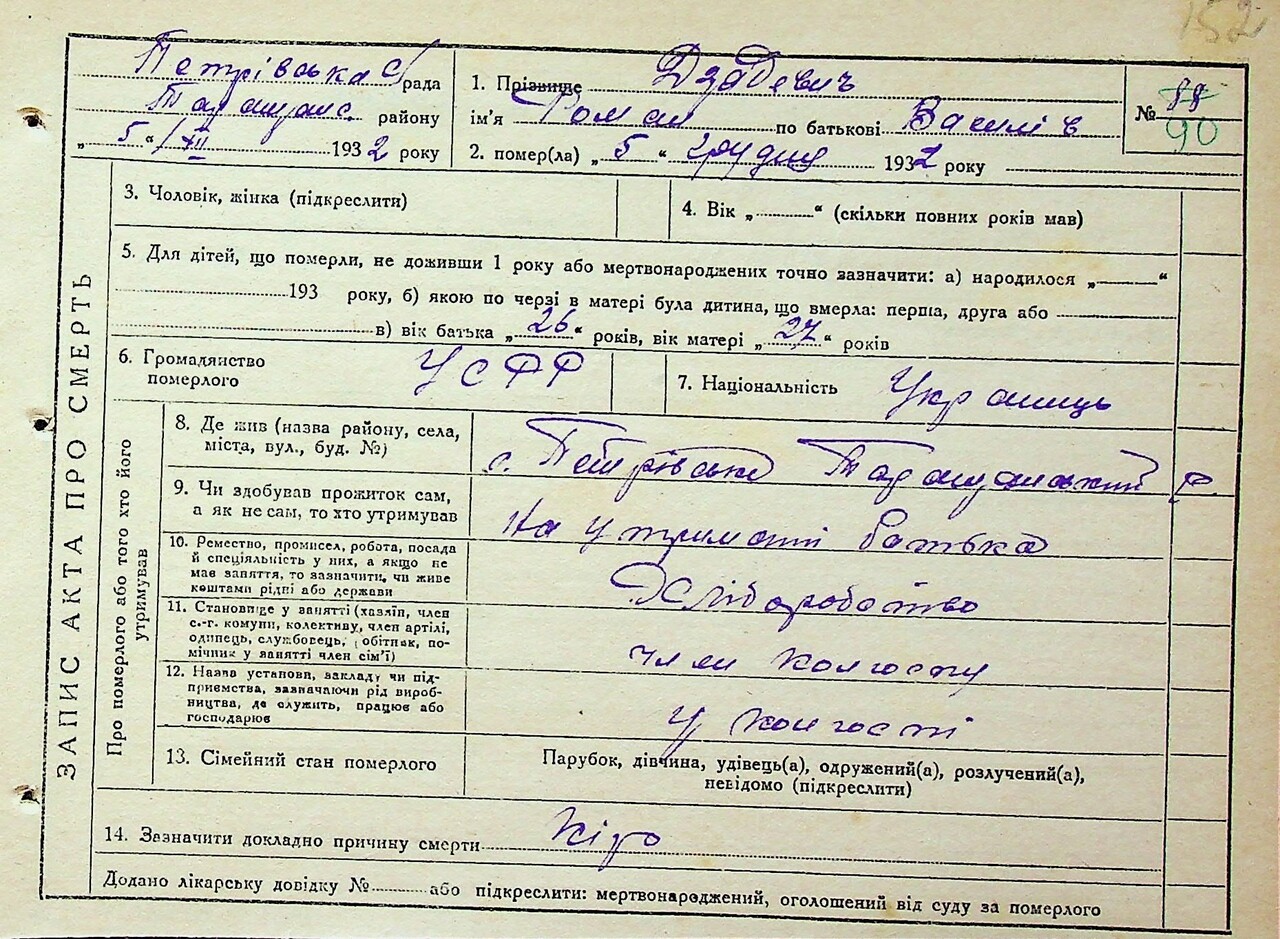 152
Петрівська с/рада
Таращанс. району
„ 5 “ /XII 1932 року
1. Прізвище Дзюбевич
ім'я Роман по батькові Василів
2. помер(ла) „ 5 “ грудня 1932 року
№ 88
90
3. Чоловік, жінка (підкреслити)
4. Вік „ “ (скільки повних років мав)
5. Для дітей, що померли, не доживши 1 року або мертвонароджених точно зазначити: а) народилося „ “
193 року, б) якою по черзі в матері була дитина, що вмерла: перша, друга або
в) вік батька „ 26 “ років, вік матері „ 27 “ років
6. Громадянство
померлого
УСРР
7. Національність Українець
8. Де жив (назва району, села,
міста, вул., буд. №)
с. Петрівське Таращанський р.
9. Чи здобував прожиток сам,
а як не сам, то хто утримував
На утриманні батька
10. Ремество, промисел, робота, посада
й спеціяльність у них, а якщо не
мав заняття, то зазначити, чи живе
коштами рідні або держави
Хліборобство
11. Становище у занятті (хазяїн, член
с.-г. комуни, колективу, член артілі,
одинець, службовець, робітник, по-
мічник у занятті член сім'ї)
член колгоспу
12. Назва установи, закладу чи під-
приємства, зазначаючи рід вироб-
ництва, де служить, працює або
господарює
У колгоспі
13. Сімейний стан померлого
Парубок, дівчина, удівець(а), одружений(а), розлучений(а),
невідомо (підкреслити)
14. Зазначити докладно причину смерти Кір
Додано лікарську довідку № або підкреслити: мертвонароджений, оголошений від суду за померлого
ЗАПИС АКТА ПРО СМЕРТЬ
Про померлого або того хто його
утримував